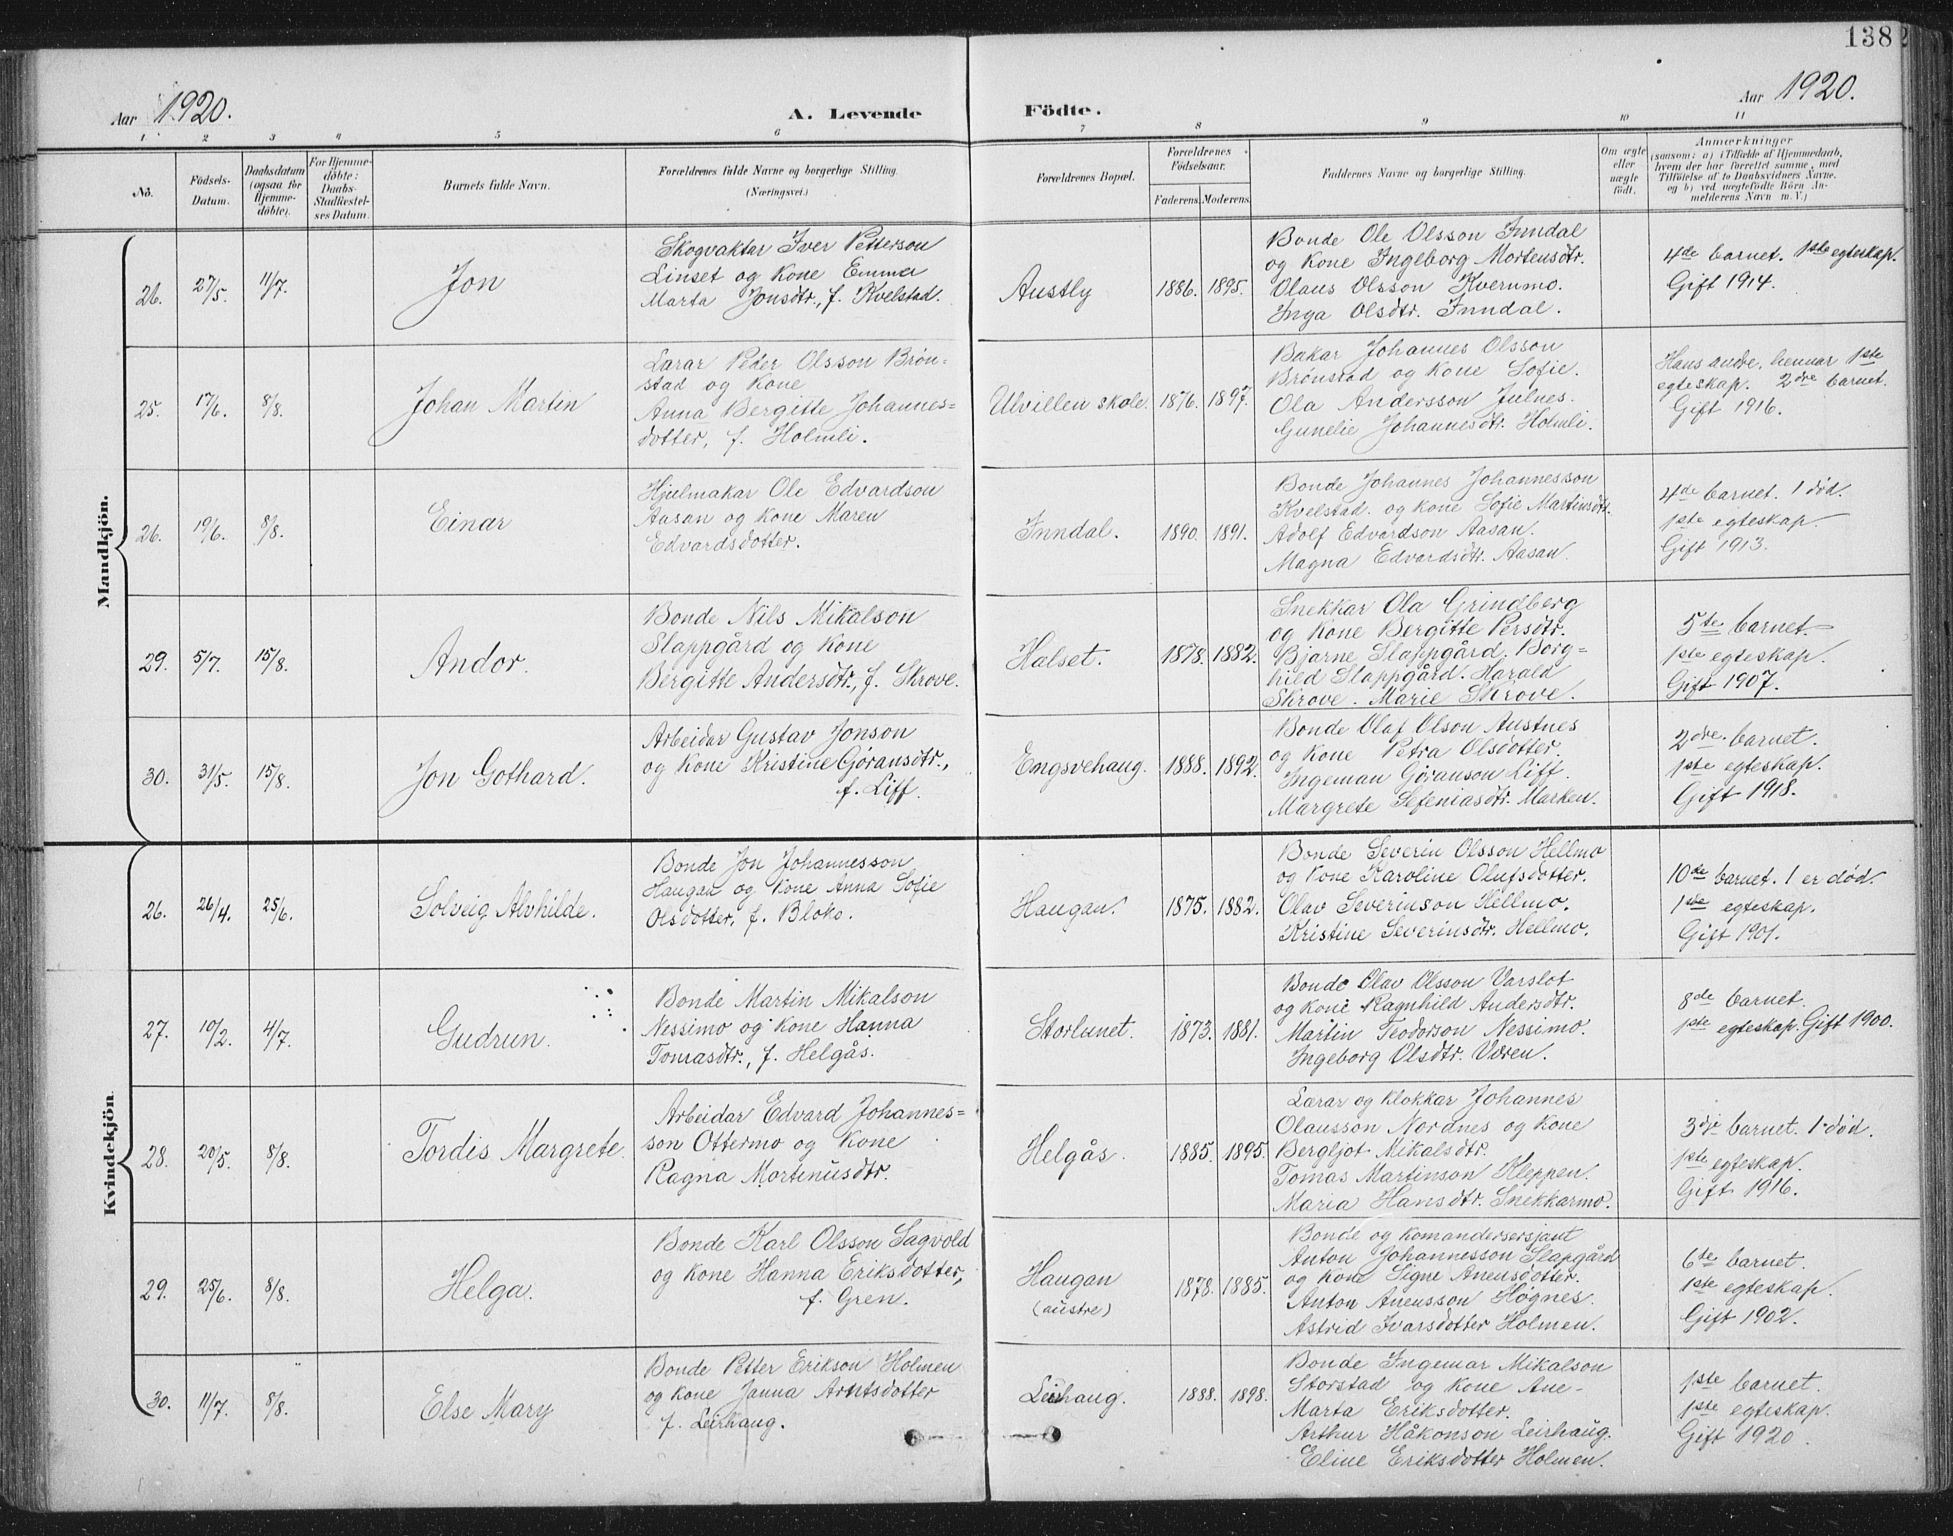 138
Aar 1920.
A. Levende Födte.
Aar 1920.
1 2 3 4 5 6 7 8 9 10 11
No.
Födsels-
Datum.
Daabsdatum
(ogsaa for
Hjemme-
döbte).
For Hjemme-
döbte:
Daabs-
Stadfæstel-
ses Datum.
Barnets fulde Navn.
Forældrenes fulde Navne og borgerlige Stilling.
(Næringsvei.)
Forældrenes Bopæl.
Forældrenes
Födselsaar.
Faderens. Moderens.
Faddernes Navne og borgerlige Stilling.
Om ægte
eller
uægte
födt.
Anmærkninger
(saasom: a) i Tilfælde af Hjemmedaab,
hvem der har forrettet samme, med
Tilföielse af to Daabsvidners Navne,
og b) ved uægtefödte Börn An-
melderens Navn m. V.)
Mandkjön.
26. 27/5. 11/7. Jon
Skogvaktar Iver Petterson
Linset og Kone Emma
Marta Jonsdtr., f. Kvelstad.
Austly 1886. 1895.
Bonde Ole Olsson Inndal
og Kone Ingeborg Mortensdtr.
Olaus Olsson Kverumo.
Inga Olsdtr. Inndal.
4de barnet. 1ste egteskap.
Gift 1914.
25. 17/6. 8/8. Johan Martin
Lærar Peder Olsson Brøn-
stad og Kone
Anna Bergitte Johannes=
dotter, f. Holmli.
Ulvillen skole. 1876. 1897.
Bakar Johannes Olsson
Brønstad og Kone Sofie.
Ola Andersson Julnes.
Gunelie Johannesdtr. Holmli.
Hans andre, hennar 1ste
egteskap. 2dre barnet.
Gift 1916.
26. 19/6. 8/8. Einar
Hjulmakar Ole Edvardson
Aasan og Kone Maren
Edvardsdotter.
Inndal. 1890. 1891.
Bonde Johannes Johannesson
Kvelstad og Kone Sofie Martinsdtr.
Adolf Edvardson Aasan.
Magna Edvardsdtr. Aasan.
4de barnet. 1 død.
1ste egteskap.
Gift 1913.
29. 5/7. 15/8. Andor.
Bonde Nils Mikalson
Slappgård og Kone
Bergitte Andersdtr., f. Skrove.
Halset. 1878. 1882.
Snekkar Ola Grindberg
og Kone Bergitte Persdtr.
Bjarne Slappgård. Borg=
hild Slappgård. Harald
Skrove. Marie Skrove.
5te barnet.
1ste egteskap.
Gift 1907.
30. 31/5. 15/8. Jon Gothard.
Arbeidar Gustav Jonson
og Kone Kristine Gøransdtr.,
f. Liff.
Engsvehaug. 1888. 1892.
Bonde Olaf Olson Austnes
og Kone Petra Olsdotter.
Ingeman Gøranson Liff.
Margrete Sefeniasdtr. Marken.
2dre barnet.
1ste egteskap.
Gift 1918.
Kvindekjön.
26. 26/4. 25/6. Solveig Alvhilde.
Bonde Jon Johannesson
Haugan og Kone Anna Sofie
Olsdotter, f. Bloko.
Haugan. 1875. 1882.
Bonde Severin Olsson Hellmo
og Kone Karoline Olufsdotter.
Olav Severinson Hellmo.
Kristine Severinsdtr. Hellmo.
10de barnet. 1 er død.
1ste egteskap.
Gift 1901.
27. 19/2. 4/7. Gudrun.
Bonde Martin Mikalson
Nessimo og Kone Hanna
Tomasdtr., f. Helgås.
Storlunet. 1873. 1881.
Bonde Olav Olsson Varslot
og Kone Ragnhild Andersdtr.
Martin Teodorson Nessimo.
Ingeborg Olsdtr. Væren.
8de barnet.
1ste egteskap. Gift 1900.
28. 20/5. 8/8. Tordis Margrete.
Arbeidar Edvard Johannes=
son Ottermo og Kone
Ragna Mortinusdtr.
Helgås. 1885. 1895.
Lærar og Klokkar Johannes
Olausson Nordnes og Kone
Bergljot Mikalsdtr.
Tomas Martinson Kleppen.
Maria Hansdtr. Snekkarmo.
3dje barnet. 1 død.
1ste egteskap.
Gift 1916.
29. 25/6. 8/8. Helga.
Bonde Karl Olsson Sagvold
og Kone Hanna Eriksdotter,
f. Gren.
Haugan
(austre)
1878. 1885.
Bonde og Komandersersjant
Anton Johannesson Slapgård
og Kone Signe Aneusdotter.
Anton Aneusson Høgnes.
Astrid Ivarsdotter Holmen.
6te barnet.
1ste egteskap.
Gift 1902.
30. 11/7. 8/8. Else Mary
Bonde Petter Erikson Holmen
og Kone Janna Arntsdotter
f. Leirhaug.
Leirhaug. 1888. 1898.
Bonde Ingemar Mikalson
Storstad og Kone Ane-
Marta Eriksdotter.
Arthur Håkonson Leirhaug.
Eline Eriksdotter Holmen.
1ste barnet.
1ste egteskap.
Gift 1920.